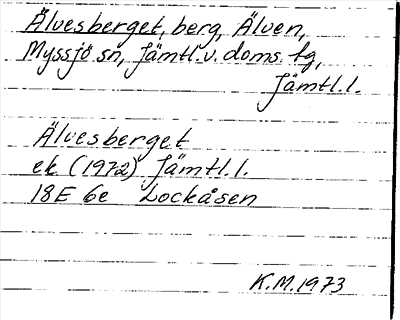 Älvesberget, berg, Älven,
Myssjö sn, Jämtl.v. doms. tg,
Jämtl.l.
Älvesberget
ek (1972) Jämtl.l.
18E 6e Lockåsen
K.M.1973